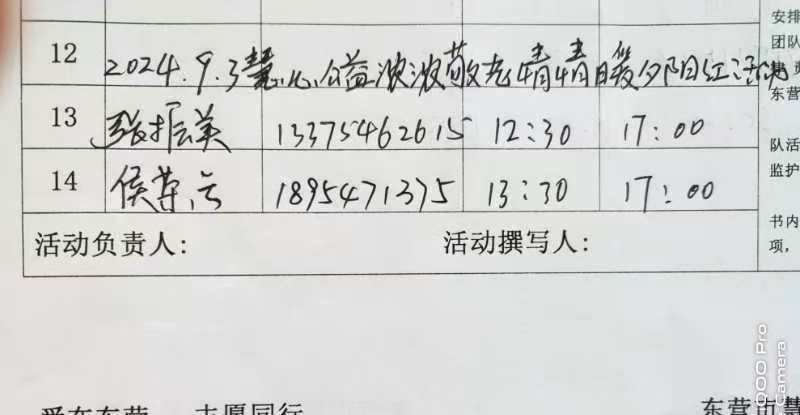 安排
团队
责
12 2024.9.3慧心公益浓浓敬老情情暖夕阳红活动
东营
13 张振美 13375462615 12:30 17:00
队活
监护
14 侯尊云 1895471375 13:30 17:00
书内
项,
活动负责人: 活动撰写人:
爱在东营 志愿同行 东营市慧
OOO Pro
Camera